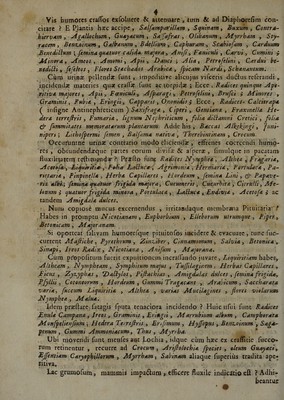 4
Vis humores crassos exsoluere & attenuare, tum & ad Diaphoresim con-
citare ? E Plantis hæc accipe, Salsamparillam, Spinam, Buxum, Contra-
hiervam, Agallochum, Guayacum, Sassafras, Olibanum, Myrrham, Sty-
racem, Benzoinum, Galbanum, Bdellium, Caphuram, Scabiosam, Carduum
Benedictum, semina quatuor calida majora, Anisi, Fœniculi, Carvi, Cumini;
Minora, Ameos, Amomi, Apii, Dauci; Alia, Petroselini, Cardui be-
nedicti, seseleos, Flores Stœchados Arabicæ, spicam Nardi, Schœnantum.
Cum urina pistendæ sunt, impulsuve alicujus visceris ductus referandi,
incidendæ materies quæ crassæ sunt ac stupidæ ? Ecce, Radices quinque Ape-
ritivas majores, Apii, Fœniculi, Asparagi, Petroselini, Brusci; Minores,
Graminis, Rubiæ, Eringii, Capparis, Ononidis; Ecce, Radices Calcitrapæ
( insigne Antinephriticum) Saxifragæ, Cyperi, Gentianæ, Frumentila He-
dera terrestris, Fumaria, lignum Nephriticum, folia dictamni Cretici, folia
& summitates memoratarum plantarum. Adde his, Baccas Alkekengi, Juni-
peri; Lithospermi semen, Balsama nativa, Therebintinam, Crocum.
Occurrunt urinæ contrario modo efficiendæ, efferentes coercendi humo-
res, obtundendæque partes eorum dirida & aspera, simulque in pacatam
fluxilitatem restringendæ ? Præsto sunt Radices Nymphææ, Altheæ, Fragariæ,
Acetosæ, Liquiritiæ, Folia Lactucæ, Agrimoniæ, Herniariæ, Portulacæ, Pa-
rietariæ, Pimpinella, Herba Capillares, Hordeum, semina Lini, & Papave-
ris albi; semina quatuor frigida majora, Cucumeris, Cucurbitæ, Citrulli, Me-
lonum; quatuor frigida minora, Portulacæ, Lactucæ, Endiviæ, Acetosæ; ac
tandem Amigdala dulces.
Nunc copiosè mucus excernendus, irritandaque membrana Pituitaria ?
Habes in promptu Nicotianam, Euphorbium, Elleborum utrumque, Piper,
Betonicam, Majoranam.
Si oporteat salivam humoresque pituitosos incidere & evacuare, nunc suc-
current Mastiche, Pyrethrum, Zinziber, Cinnamomum, Salvia, Betonica,
Sinapi, Ireos Radix, Nicotiana, Anisum, Majorana.
Cum propositum fuerit expuitionem incrassando juvare, Loquiritiam habes,
Altheam, Nympheam, Symphitum majus, Tussilaginem, Herbas Capillares,
Ficus, Zizyphas, Dactylos, Pistachias, Amigdalas dulces; semina frigida,
Psyllii, Cotoneorum, Hordeum, Gummi Tragacant, Arabicum, Saccharata
varia, succum Liquiritiæ, Altheæ, varias Mucilagines, flores violarum
Nympheæ, Malvæ.
Idem præstare satagis sputa tenaciora incidendo ? Huic usui sunt Radices
Enulæ Campanæ, Ireos, Graminis, Eringii, Marrubium album, Camphorata
Monspeliensium, Hedera Terrestris, Erisimum, Hyssopus, Benzoinum, Saga-
penum, Gummi Ammoniacum, Thus, Myrrha.
Ubi movendi sunt menses aut Lochia, idque cùm hæc ex crassitie succo-
rum retinentur, recurre ad Crocum, Aristolochiæ species, oleum Guayaci,
Essentiam Caryophillorum, Myrrham, Sabinam aliaque superiùs tradita ape-
ritiva.
Lac grumosum, mammis impactum, efficere fluxile indicatio est ? Adhi-
beantur